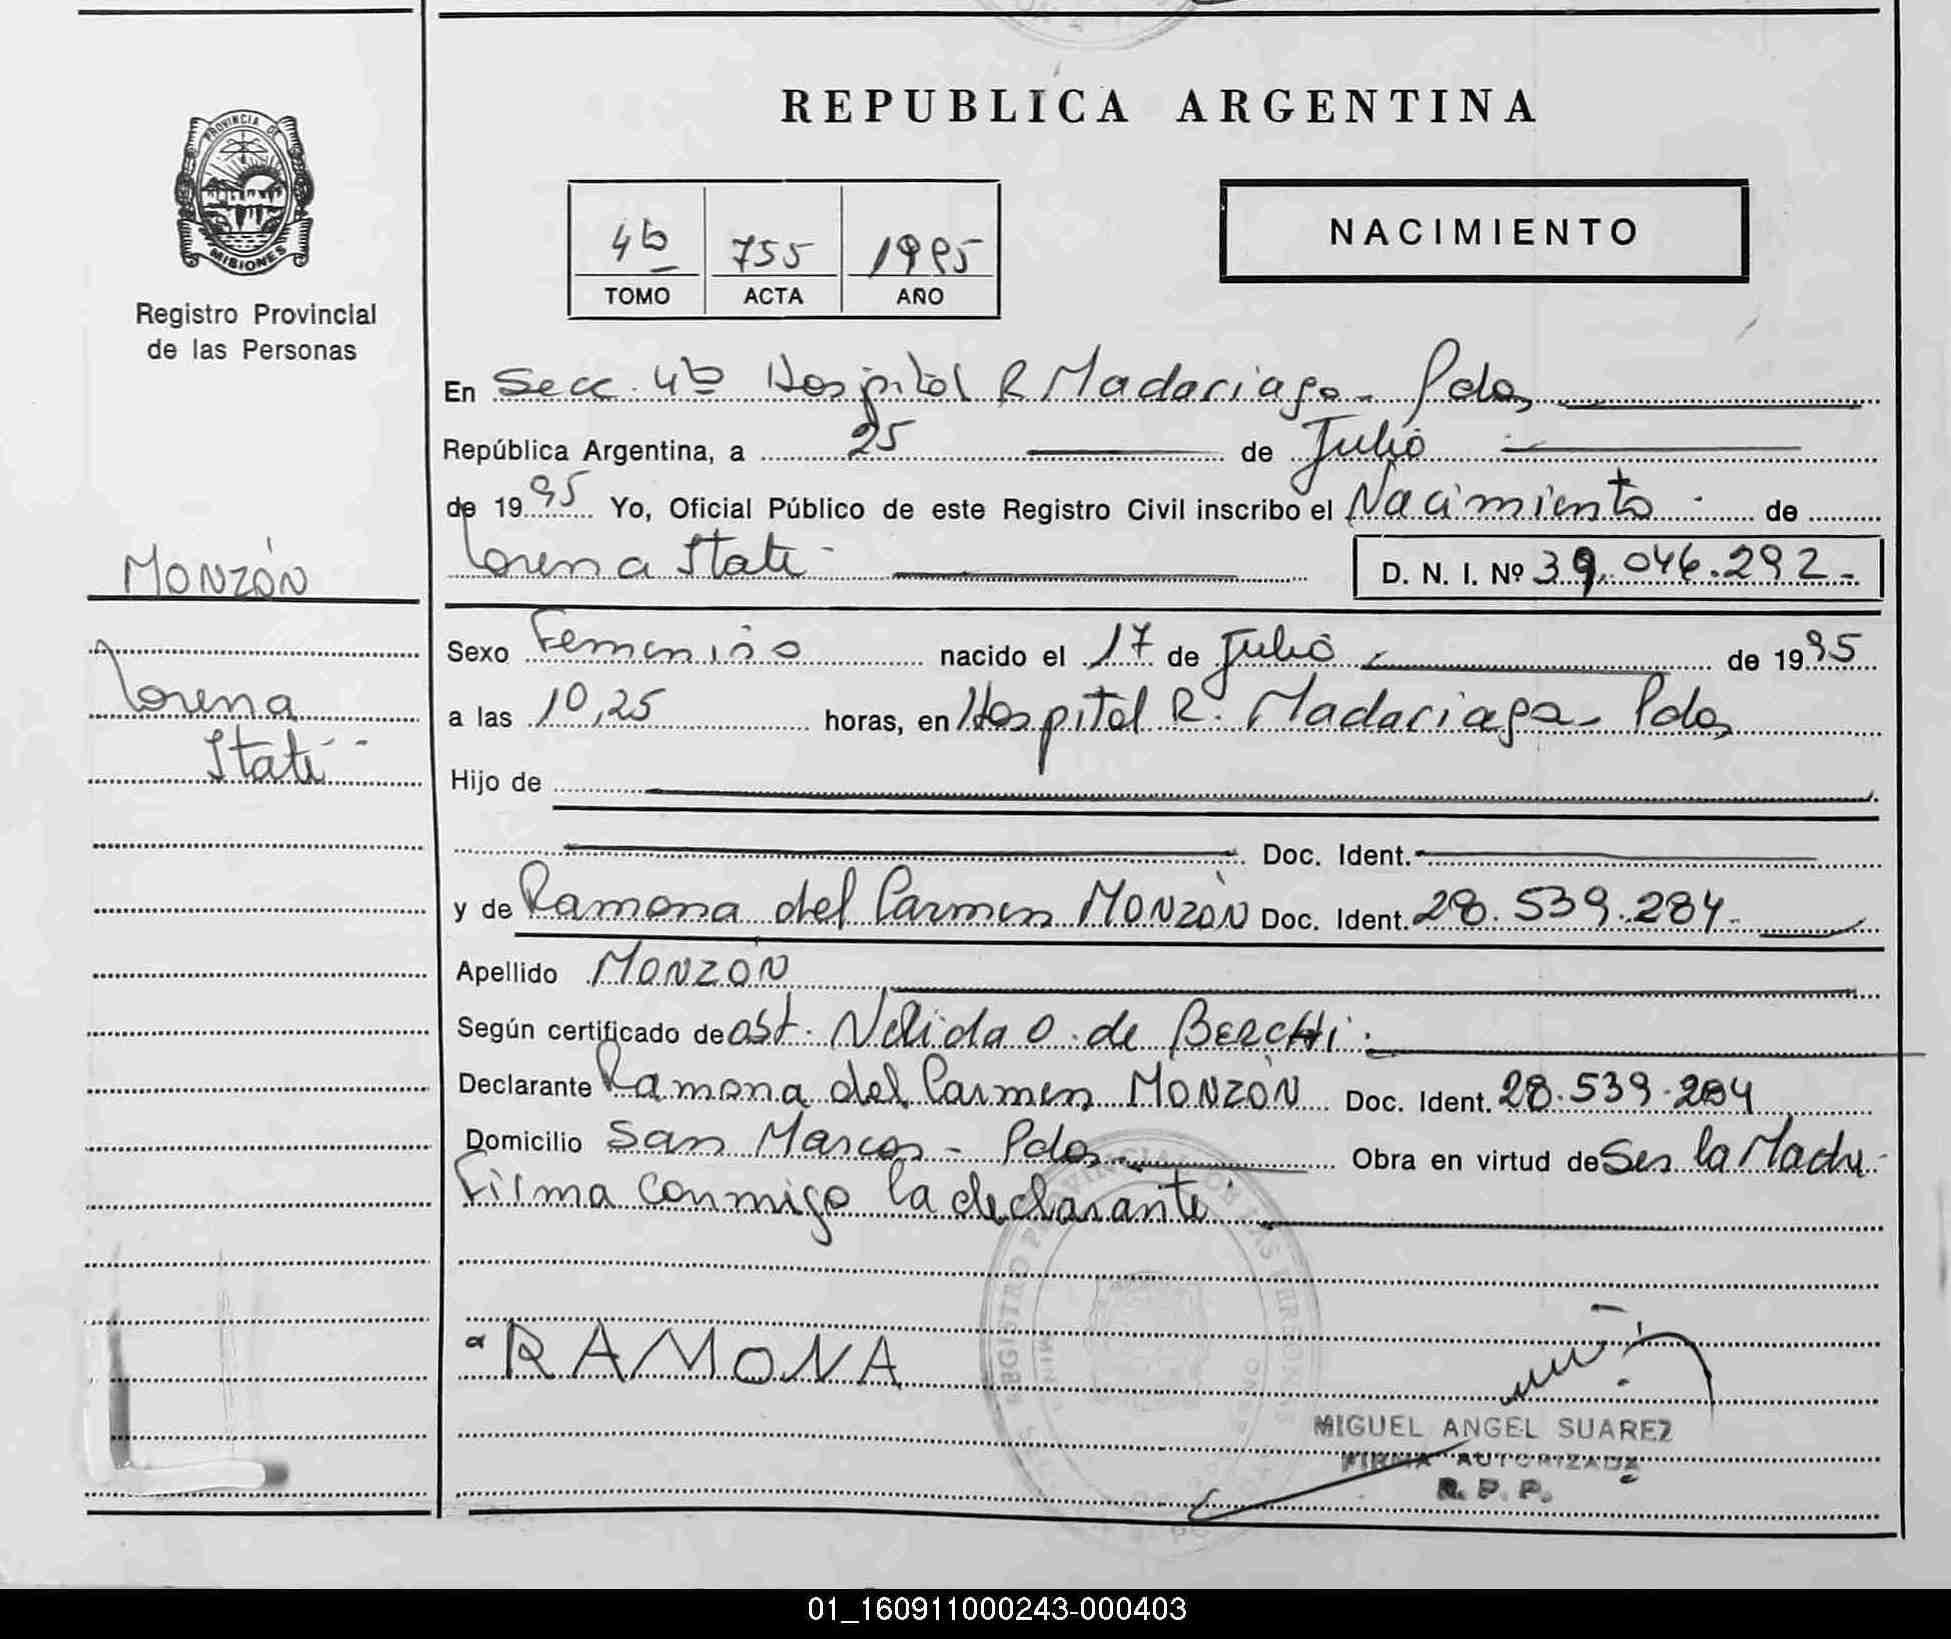 REPUBLICA ARGENTINA
PROVINCIA DE
MISIONES
Registro Provincial
de las Personas
4º 755 1995
TOMO ACTA AÑO
NACIMIENTO
En Secc. 4º Hospital R Madariaga - Pdas
República Argentina, a 25 de Julio
de 1995 Yo, Oficial Público de este Registro Civil inscribo el Nacimiento de
Lorena Itatí D. N. I. Nº 39.046.292.-
MONZÓN
Lorena
Itatí
Sexo Femenino nacido el 17 de Julio de 1995
a las 10,25 horas, en Hospital R. Madariaga - Pdas
Hijo de
Doc. Ident.
y de Ramona del Carmen MONZÓN Doc. Ident. 28.539.284.
Apellido MONZÓN
Según certificado de obst. Nelida O. de BERCHI.
Declarante Ramona del Carmen MONZÓN Doc. Ident. 28.539.284
Domicilio San Marcos - Pdas. Obra en virtud de Ser la Madre-
Firma conmigo la declarante
RAMONA
MIGUEL ANGEL SUAREZ
FIRMA AUTORIZADA
R. P. P.
01_160911000243-000403